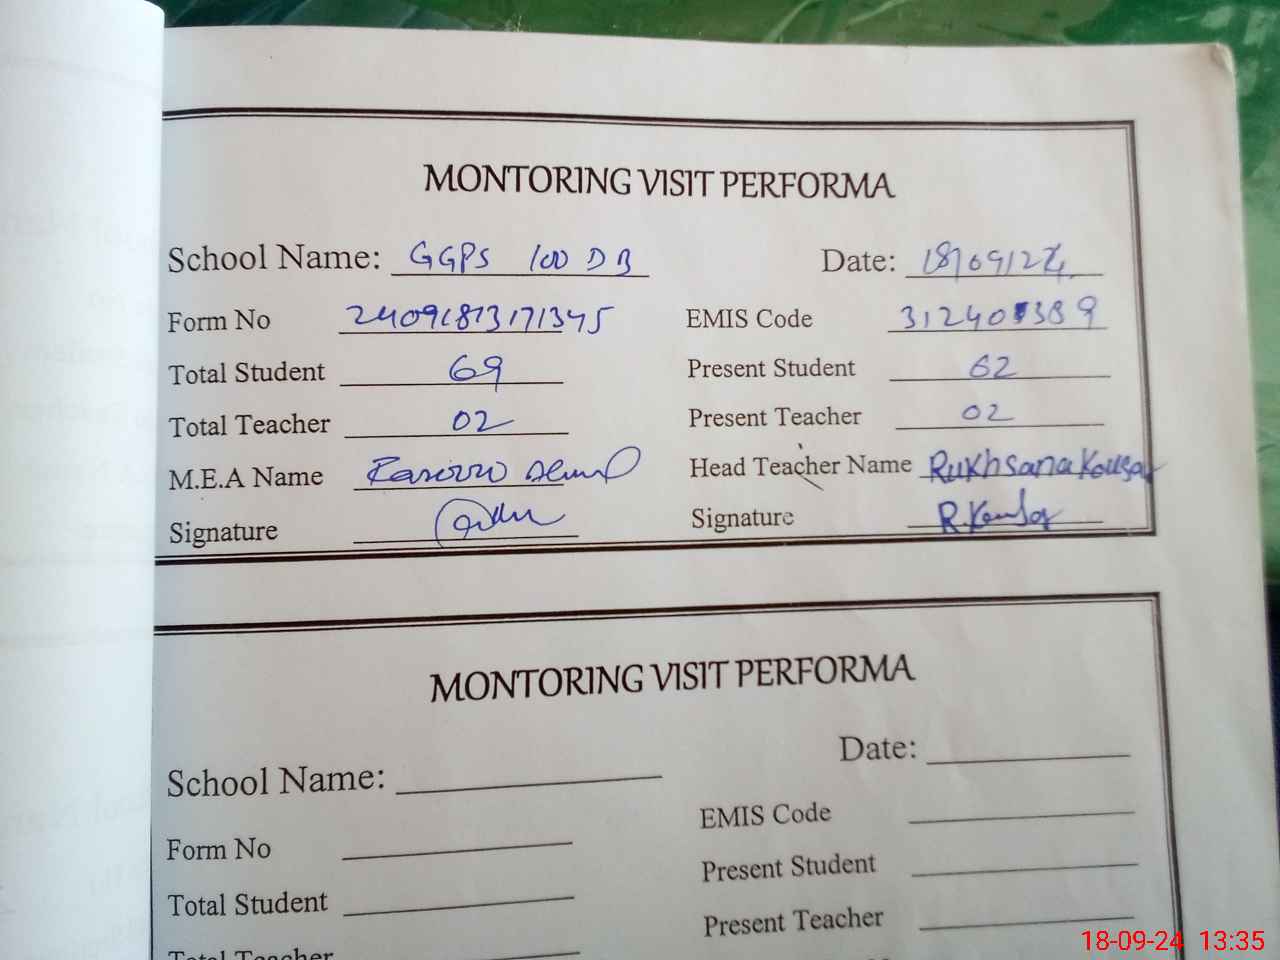 MONTORING VISIT PERFORMA
School Name: GGPS 100 DB Date: 18/09/24
Form No 24091813171345 EMIS Code
Total Student 69 Present Student 62
Total Teacher 02 Present Teacher 02
M.E.A Name Head Teacher Name Rukhsana Kousar
Signature Signature R.Kousar
MONTORING VISIT PERFORMA
School Name: Date:
Form No EMIS Code
Total Student Present Student
Total Teacher Present Teacher
18-09-24 13:35